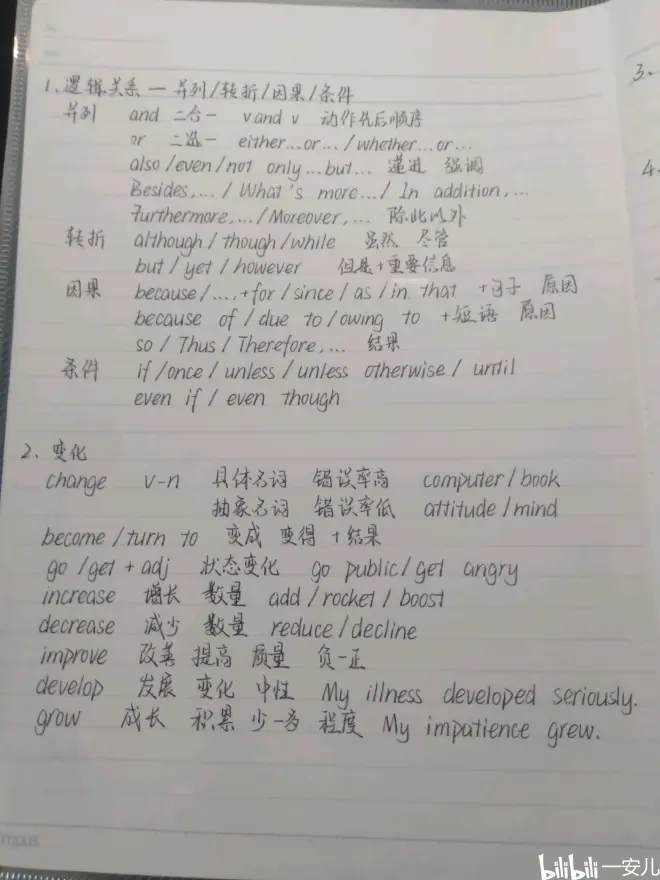 1、逻辑关系 — 并列/转折/因果/条件
并列 and 二合一 v and v 动作先后顺序
or 二选一 either...or.../whether...or...
also/even/not only...but... 递进 强调
Besides,.../What's more.../In addition,...
Furthermore,.../Moreover,... 除此以外
转折 although/though/while 虽然 尽管
but/yet/however 但是+重要信息
因果 because/....+for/since/as/in that +句子 原因
because of/due to/owing to +短语 原因
so/Thus/Therefore,... 结果
条件 if/once/unless/unless otherwise/until
even if/even though
2、变化
change v-n 具体名词 错误率高 computer/book
抽象名词 错误率低 attitude/mind
become/turn to 变成 变得 +结果
go/get+adj 状态变化 go public/get angry
increase 增长 数量 add/rocket/boost
decrease 减少 数量 reduce/decline
improve 改善 提高 质量 负—正
develop 发展 变化 中性 My illness developed seriously.
grow 成长 积累 少—多 程度 My impatience grew.
3、
4、
mpus
bilibili 一安儿